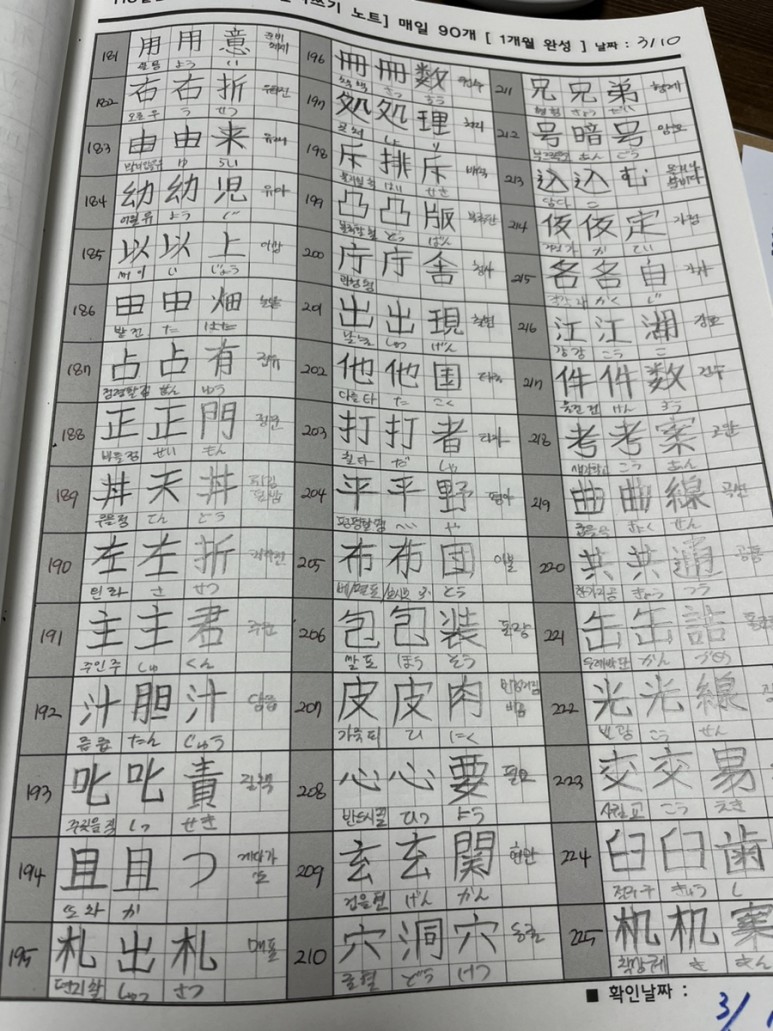 쓰기 노트] 매일 90개 [ 1개월 완성 ] 날짜 : 3/10
181 用 用 意
よう い
182 右 右 折
う せつ
183 由 由 来
ゆ らい
184 幼 幼 児 유아
어릴 유 よう じ
185 以 以 上 이상
써 이 い じょう
186 田 田 畑
밭 전 た はた
187 占 占 有 점유
せん ゆう
188 正 正 門 정문
바를 정 せい もん
189 丼 天 丼
てん どう
190 左 左 折 좌회전
왼 좌 さ せつ
191 主 主 君 주군
주인 주 しゅ くん
192 汁 胆 汁 담즙
즙 즙 たん じゅう
193 叱 叱 責 질책
꾸짖을 질 しっ せき
194 且 且 つ 게다가 또
또 차 か
195 札 出 札 매표
편지 찰 しゅっ さつ
196 冊 冊 数
さっ すう
197 処 処 理 처리
しょ り
198 斥 排 斥 배척
はい せき
199 凸 凸 版 볼록판
とっ ぱん
200 庁 庁 舎 청사
201 出 出 現 출현
날 출 しゅつ げん
202 他 他 国 타국
다를 타 た こく
203 打 打 者 타자
칠 타 だ しゃ
204 平 平 野 평야
평평할 평 へい や
205 布 布 団 이불
베/펼 포/보시 보 ふ とう
206 包 包 装 포장
쌀 포 ほう そう
207 皮 皮 肉
가죽 피 ひ にく
208 心 心 要 필요
반드시 필 ひつ よう
209 玄 玄 関 현관
검을 현 げん かん
210 穴 洞 穴 동굴
구멍 혈 どう けつ
211 兄 兄 弟 형제
きょう だい
212 号 暗 号 암호
あん ごう
213 込 込 む
담다 こ
214 仮 仮 定 가정
か てい
215 各 各 自 각자
かく じ
216 江 江 湖 강호
강 강 こう こ
217 件 件 数 건수
물건 건 けん すう
218 考 考 案 고안
생각할 고 こう あん
219 曲 曲 線 곡선
굽을 곡 きょく せん
220 共 共 通 공통
한가지 공 きょう つう
221 缶 缶 詰
かん づめ
222 光 光 線
빛 광 こう せん
223 交 交 易
사귈 교 こう えき
224 臼 臼 歯
절구 구 きゅう し
225 机 机 案
책상 궤 き あん
■ 확인날짜 :
3/